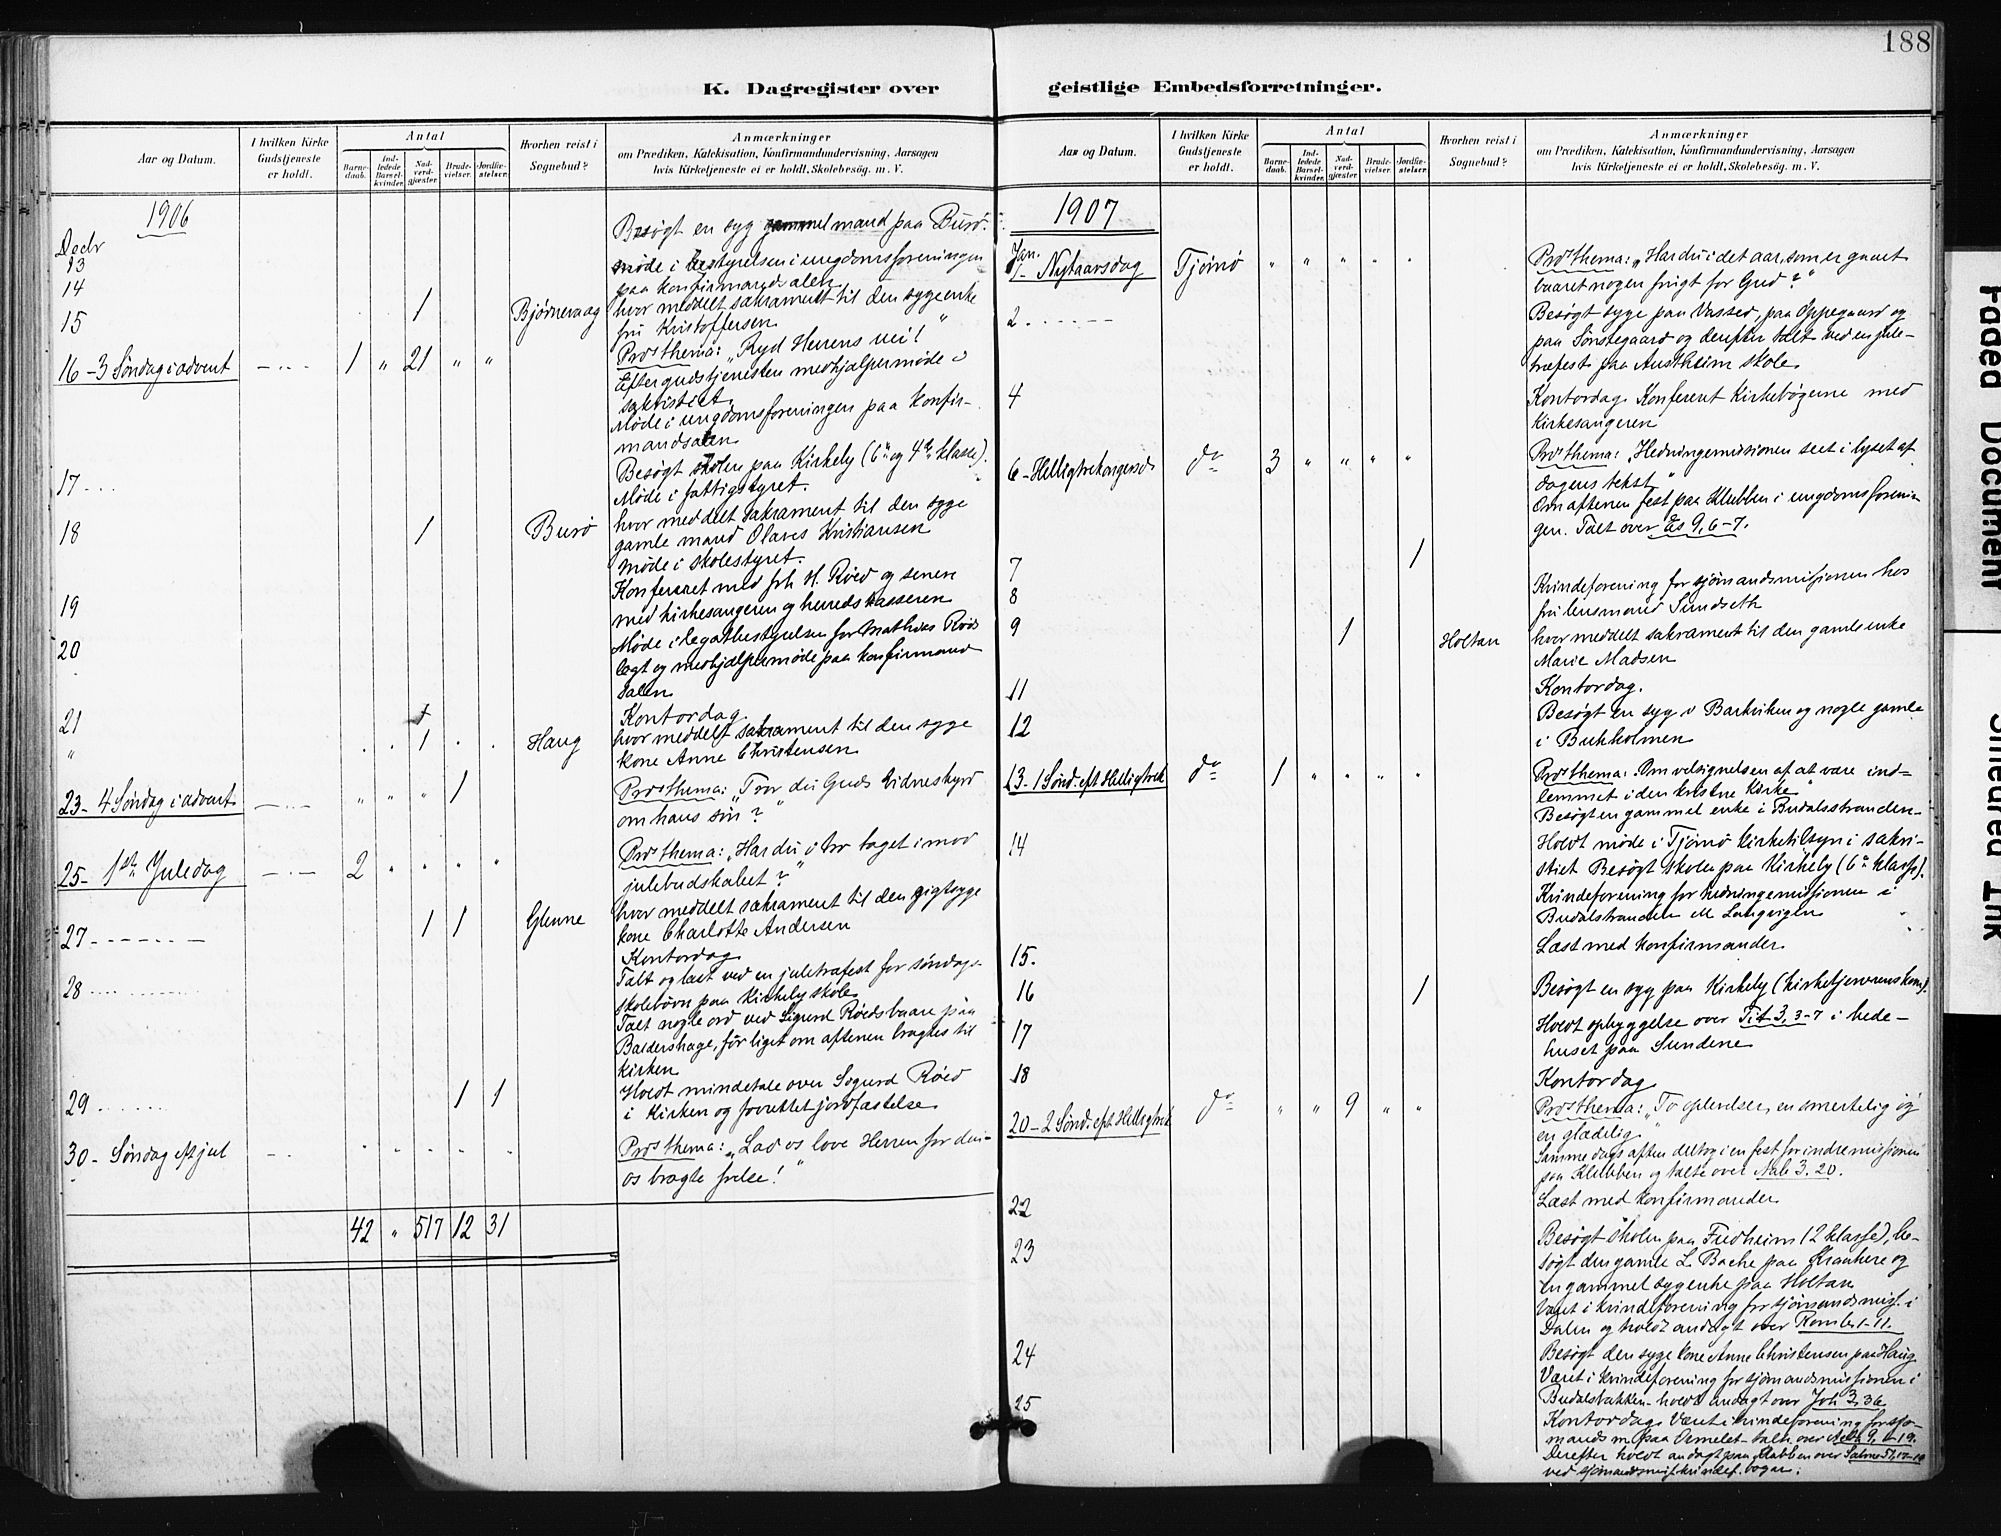 188
K. Dagregister over geistlige Embedsforretninger.
Aar og Datum.
I hvilken Kirke Gudstjeneste er holdt.
Antal
Barne-daab.
Ind-ledede Barsel-kvinder.
Nad-verd-gjæster.
Brude-vielser.
Jordfæ-stelser.
Hvorhen reist i Sognebud?
Anmærkninger
om Prædiken, Katekisation, Konfirmandundervisning, Aarsagen
hvis Kirketjeneste ei er holdt, Skolebesøg. m. V.
1906
Decbr
13 Besøgt en syg mand paa Burø.
14 Møde i bestyrelsen i ungdomsforeningen
paa konfirmandsalen
15 1 Bjørnevaag hvor meddelt sakrament til den syge enke
fru Kristoffersen
16 - 3 Søndag i advent 1 " 21 " " Præs thema: "Ryd Herrens vei!"
Efter gudstjenesten medhjælpermøde i
sakristiet.
Møde i ungdomsforeningen paa konfir-
mandsalen
17 Besøgt skolen paa Kirkely (6te og 4de klasse).
Møde i fattigstyret.
18 1 Burø hvor meddelt sakrament til den syge
gamle mand Olaves Kristiansen
Møde i skolestyret.
19 Konfereret med frk H. Røed og senere
med kirkesangeren og herredskasseren
20 Møde i legatbestyrelsen for Mathias Røds
legt og medhjælpermøde paa konfirmand
salen
21 Kontordag
" 1 Haug hvor meddelt sakrament til den syge
kone Anne Christensen
23 - 4 Søndag i advent " " " 1 Præs thema: "Tror du Guds vidnesbyrd
om hans søn?"
25 - 1ste Juledag 2 " " " " Præs thema: "Har du i tro taget imod
julebudskabet?"
27 1 1 Glenne hvor meddelt sakrament til den gigtsyge
kone Charlotte Andersen
28 Kontordag
Talt og læst ved en juletræfest for søndags-
skolebørn paa Kirkely skole
Talt nogle ord ved Sigurd Røeds baare paa
Baldershage, før liget om aftenen bragtes til
kirken
29 1 1 Holdt mindetale over Sigurd Røed
i kirken og forrettet jordfæstelse
30 - Søndag eft jul Præs thema: "Lad os love Herren for den
os bragte frelse!"
42 " 517 12 31
Aar og Datum.
I hvilken Kirke Gudstjeneste er holdt.
Antal
Barne-daab.
Ind-ledede Barsel-kvinder.
Nad-verd-gjæster.
Brude-vielser.
Jordfæ-stelser.
Hvorhen reist i Sognebud?
Anmærkninger
om Prædiken, Katekisation, Konfirmandundervisning, Aarsagen
hvis Kirketjeneste ei er holdt, Skolebesøg. m. V.
1907
Jan.
1 - Nytaarsdag Tjømø " " " " " Præs thema: "Har du i det aar, som er gaaet
baaret nogen frugt for Gud?"
2 Besøgt syge paa Vasser, paa Oppegaard og
paa Sønstegaard og derefter talt ved en jule-
træfest paa Austheim skole
4 Kontordag. Konferert kirkebøgerne med
kirkesangeren
6 - Helligtrekongersds do 3 " " " " Præs thema: "Hedningemissionen seet i lyset af
dagens tekst"
Om aftenen fest paa Klubben i ungdomsforenin-
gen. Talt over Es 9, 6-7.
7 1
8 Kvindeforening for sjømandsmissionen hos
fru lensmand Sundseth
9 1 Holtan hvor meddelt sakrament til den gamle enke
Marie Madsen
11 Kontordag.
12 Besøgt en syg i Barkviken og nogle gamle
i Bukholmen
13 - 1 Sønd. eft Helligtrek do 1 " " " " Præs thema: Om velsignelsen af at være ind-
lemmet i den kristne kirke"
Besøgt en gammel enke i Budalsstranden
14 Holdt møde i Tjømø kirketilsyn i sakri-
stiet Besøgt skolen paa Kirkely (6te klasse).
Kvindeforening for hedningemissionen i
Budalstranden M Langvigen
15. Læst med konfirmander
16 1 Besøgt en syg paa Kirkely (kirketjenerens kone).
17 Holdt opbyggelse over Tit 3, 3-7 i bede-
huset paa Sundene
18 Kontordag
20 - 2 Sønd. eft Helligtrek do " " 9 " " Præs thema: "To oplevelser, en smertelig og
en glædelig"
Samme dags aften deltog i en fest for indremissionen
paa Klubben og talte over
22 Læst med konfirmander
23 Besøgt skolen paa Fredheim (2 klasse), be-
søgt den gamle L. Bache paa og
en gammel syg enke paa Holtan
Været i kvindeforening for sjømandsmiss. i
Dalen og holdt andagt over
24 Besøgt den syge kone Anne Christensen paa Haug
Været i kvindeforening for sjømandsmissionen i
Budalsbakken - holdt andagt over Joh 3, 36
25 Kontordag. Været i kvindeforening for sjø-
mandsm. paa Ormelet
Derefter holdt andagt paa Klubben over
ved sjømandsmis.
Faded Document
Smeared Ink